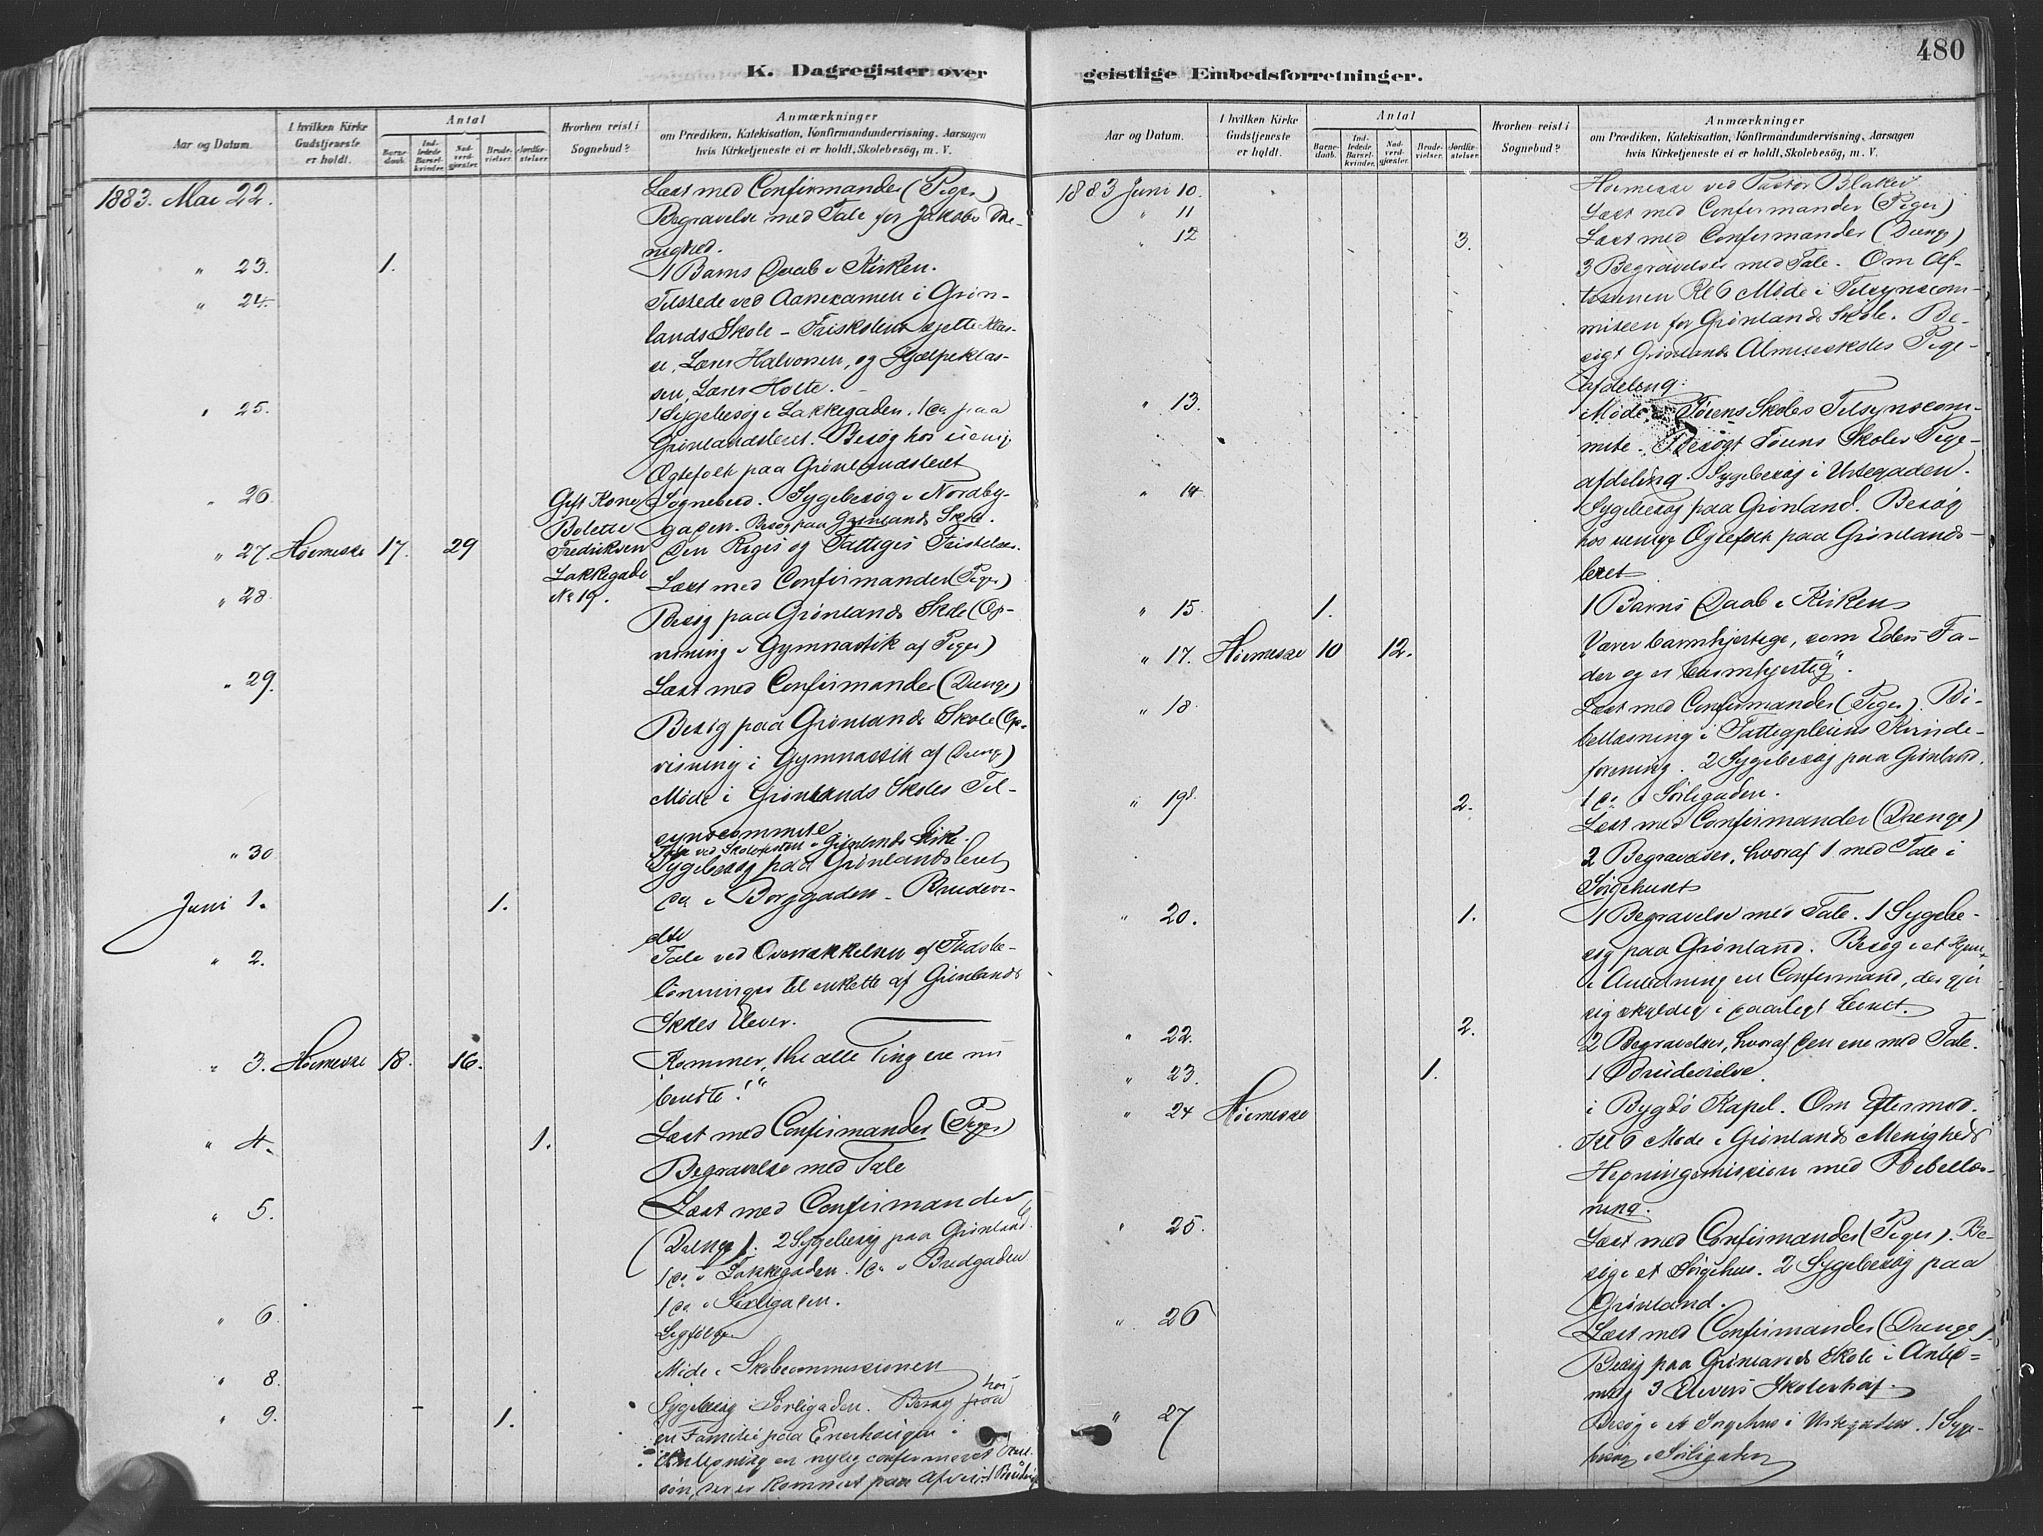 480
K. Dagregister over
Aar og Datum.
I hvilken Kirke Gudstjeneste er holdt.
Antal
Barnedaab.
Indledede Barselkvinder.
Nadverdgjæster.
Brudevielser.
Jordfæstelser.
Hvorhen reist i Sognebud?
Anmærkninger
om Prædiken, Katekisation, Konfirmandundervisning, Aarsagen
hvis Kirketjeneste ei er holdt, Skolebesøg, m. V.
1883. Mai 22.
Læst med Confirmander (Piger)
Begravelse med Tale for Jakobs Me-
nighed.
" 23. 1.
1 Barns Daab i Kirken.
" 24.
Tilstede ved Aarsexamen i Grøn-
lands Skole - Friskolens sjette Klas-
se, Lærer Halvorsen, og Hjælpeklas-
sen, Lærer Holte.
" 25.
1 Sygebesøg i Lakkegaden, 1 do paa
Grønlandsleret. Besøg hos uenig
Ægtefolk paa Grønlandsleret
" 26
Gift Kone
Bolette
Fredriksen
Lakkegade
No 19.
Sognebud. Sygebesøg i Nordby-
gaden. Besøg paa Grønlands Skole.
" 27. Høimesse 17. 29
Den Riges og Fattiges Fristelser.
" 28.
Læst med Confirmander (Piger)
Besøg paa Grønlands Skole (Op-
visning i Gymnastik af Piger)
" 29.
Læst med Confirmander (Drenge)
Besøg paa Grønlands Skole (Op-
visning i Gymnastik af Drenge)
Møde i Grønlands Skoles Til-
synscommite
" 30
Tale ved Skolefesten i Grønlands Kirke.
Sygebesøg paa Grønlandsleret
Juni 1. 1.
do i Borggaden - Brudevi-
else
" 2.
Tale ved Overrækkelsen af Flids-
lønninger til enkelte af Grønlands
Skoles Elever.
" 3. Høimesse 18. 16.
Kommer, thi alle Ting ere nu
beredte!"
" 4. 1.
Læst med Confirmander (Piger)
Begravelse med Tale
" 5.
Læst med Confirmander
(Drenge). 2 Sygebesøg paa Grønland
1 do i Lakkegaden. 1 do i Bredgaden
1 do i Sørligaden.
" 6.
Ligfølge
" 8.
Møde i Skolecommissionen
" 9. 1.
Sygebesøg i Sørligaden. Besøg hos
en Familie paa Enerhougen i
Anledning en nylig confirmeret
søn, der er kommet paa Afvei. 1 Brudevi
geistlige Embedsforretninger.
Aar og Datum.
I hvilken Kirke Gudstjeneste er holdt.
Antal
Barnedaab.
Indledede Barselkvinder.
Nadverdgjæster.
Brudevielser.
Jordfæstelser.
Hvorhen reist i Sognebud?
Anmærkninger
om Prædiken, Katekisation, Konfirmandundervisning, Aarsagen
hvis Kirketjeneste ei er holdt, Skolebesøg, m. V.
1883 Juni 10.
Høimesse ved Pastor
" 11
Læst med Confirmander (Piger)
" 12 3.
Læst med Confirmander (Drenge)
3 Begravelser med Tale. Om Af-
tenen Kl 6 Møde i Tilsynscom-
miteen for Grønlands Skole. Be-
søgt Grønlands Almueskoles Pige-
afdeling.
" 13.
Møde i Tøiens Skoles Tilsynscom-
mite. Besøgt Tøiens Skoles Pige-
afdeling. Sygebesøg i Urtegaden.
" 14
Sygebesøg paa Grønland. Besøg
hos uenige Ægtefolk paa Grønlands-
leret
" 15 1.
1 Barns Daab i Kirken
" 17. Høimesse 10 12.
"Værer barmhjertige, som Eders Fa-
der og er barmhjertig".
" 18.
Læst med Confirmander (Piger). Bi-
bellæsning i Fattigpleiens Kvinde-
forening. 2 Sygebesøg paa Grønland.
1 do i Sørligaden.
" 19. 2.
Læst med Confirmander (Drenge)
2 Begravelser, hvoraf 1 med Tale i
Sørgehuset
" 20. 1.
1 Begravelse med Tale. 1 Sygebe-
søg paa Grønland. Besøg i et Hjem
i Anledning en Confirmand, der gjør
sig skyldig i daarligt Levnet.
" 22. 2.
2 Begravelser, hvoraf den ene med Tale.
" 23. 1.
1 Brudevielse.
" 24 Høimesse
i Bygdø Kapel. Om Eftermid.
Kl 6 Møde i Grønlands Menigheds
Hedningemission med Bibellæs-
ning.
" 25.
Læst med Confirmander (Piger). Be-
søg i et Sørgehus. 2 Sygebesøg paa
Grønland.
" 26
Læst med Confirmander (Drenge).
Besøg paa Grønlands Skole i Anled-
ning 3 Elevers Skoleforhold.
" 27
Besøg i et Sørgehus i Urtegaden. 1 Syge-
besøg i Sørligaden